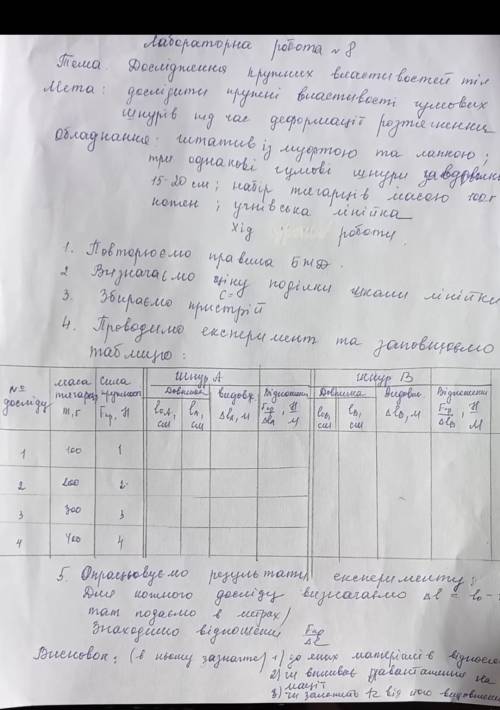 Лабораторна робота №8
Тема. Дослідження пружних властивостей тіл
Мета: дослідити пружні властивості гумових
шнурів під час деформації розтягнення
Обладнання: штатив із муфтою та лапкою;
три однакові гумові шнури завдовжки
15-20 см; набір тягарців масою 100г
кожен; учнівська лінійка
Хід роботи.
1. Повторюємо правила БЖД.
2 Визначаємо ціну поділки шкали лінійки
С=
3. Збираємо пристрій
4. Проводимо експеримент та заповнюємо
таблицю:
№ досліду маса тягарця m, г Сила пружності Fпр, Н Шнур А Шнур В
Довжина видовж. Відношення Довжина Видовж. Відношення
l₀A, см lA, см ΔlA, м Fпр/ΔlA, Н/м l₀B, см lB, см ΔlB, м Fпр/ΔlB, Н/м
1 100 1
2 200 2
3 300 3
4 400 4
5. Опрацьовуємо результати експерименту:
Для кожного досліду визначаємо Δl = l₀ -
тат подаємо в метрах/
Знаходимо відношення Fпр/Δl
Висновок: (в ньому зазначте) 1) до яких матеріалів віднос
2) чи впливає навантаження на
мації
3) чи залежить k від його видовження